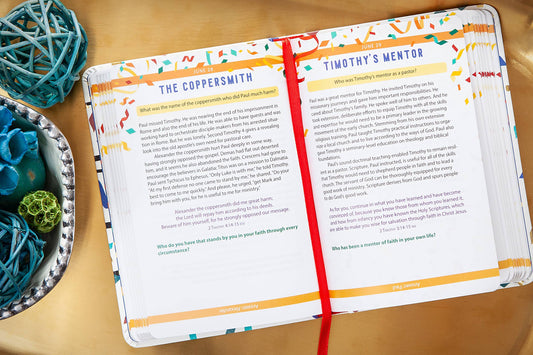 JUNE 28
THE COPPERSMITH
What was the name of the coppersmith who did Paul much harm?
Paul missed Timothy. He was nearing the end of his imprisonment in
Rome and also the end of his life. He was able to have guests and was
working hard to orchestrate disciple-makers from his arrested situa-
tion in Rome. But he was lonely. Second Timothy 4 gives a revealing
look into the old apostle's own need for pastoral care.
Alexander the coppersmith hurt Paul deeply in some way,
having strongly opposed the gospel. Demas had flat out deserted
him, and it seems he also abandoned the faith. Crescens had gone to
encourage the believers in Galatia; Titus was on a mission to Dalmatia.
Paul sent Tychicus to Ephesus. "Only Luke is with me," he told Timothy.
"At my first defense no one came to stand by me," he shared. "Do your
best to come to me quickly." And please, he urged, "get Mark and
bring him with you, for he is useful to me for ministry."
Alexander the coppersmith did me great harm;
the Lord will repay him according to his deeds.
Beware of him yourself, for he strongly opposed our message.
2 TIMOTHY 4:14-15 ESV
Who do you have that stands by you in your faith through every
circumstance?
Answer: Alexander
JUNE 29
TIMOTHY'S MENTOR
Who was Timothy's mentor as a pastor?
Paul was a great mentor for Timothy. He invited Timothy on his
missionary journeys and gave him important responsibilities. He
cared about Timothy's family. He spoke well of him to others. And he
took extensive, deliberate efforts to equip Timothy with all the skills
and expertise he would need to be a primary leader in the growing
movement of the early church. Stemming from his own extensive
religious training, Paul taught Timothy practical instructions for setting
up a local church and to live according to the ways of God. Paul also
gave Timothy a seminary-level education on theology and biblical
foundations.
Paul's sound doctrinal teaching enabled Timothy to remain reol-
ute as a pastor. Scripture, Paul instructed, is useful for all of the skills
that Timothy would need to shepherd people in faith and to lead a
church. The servant of God can be thoroughly equipped for every
good work of ministry. Scripture derives from God and spurs people
to do God's good work.
As for you, continue in what you have learned and have become
convinced of, because you know those from whom you learned it,
and how from infancy you have known the Holy Scriptures, which
are able to make you wise for salvation through faith in Christ Jesus.
2 TIMOTHY 3:14-15 NIV
Who has been a mentor of faith in your own life?
Answer: Paul